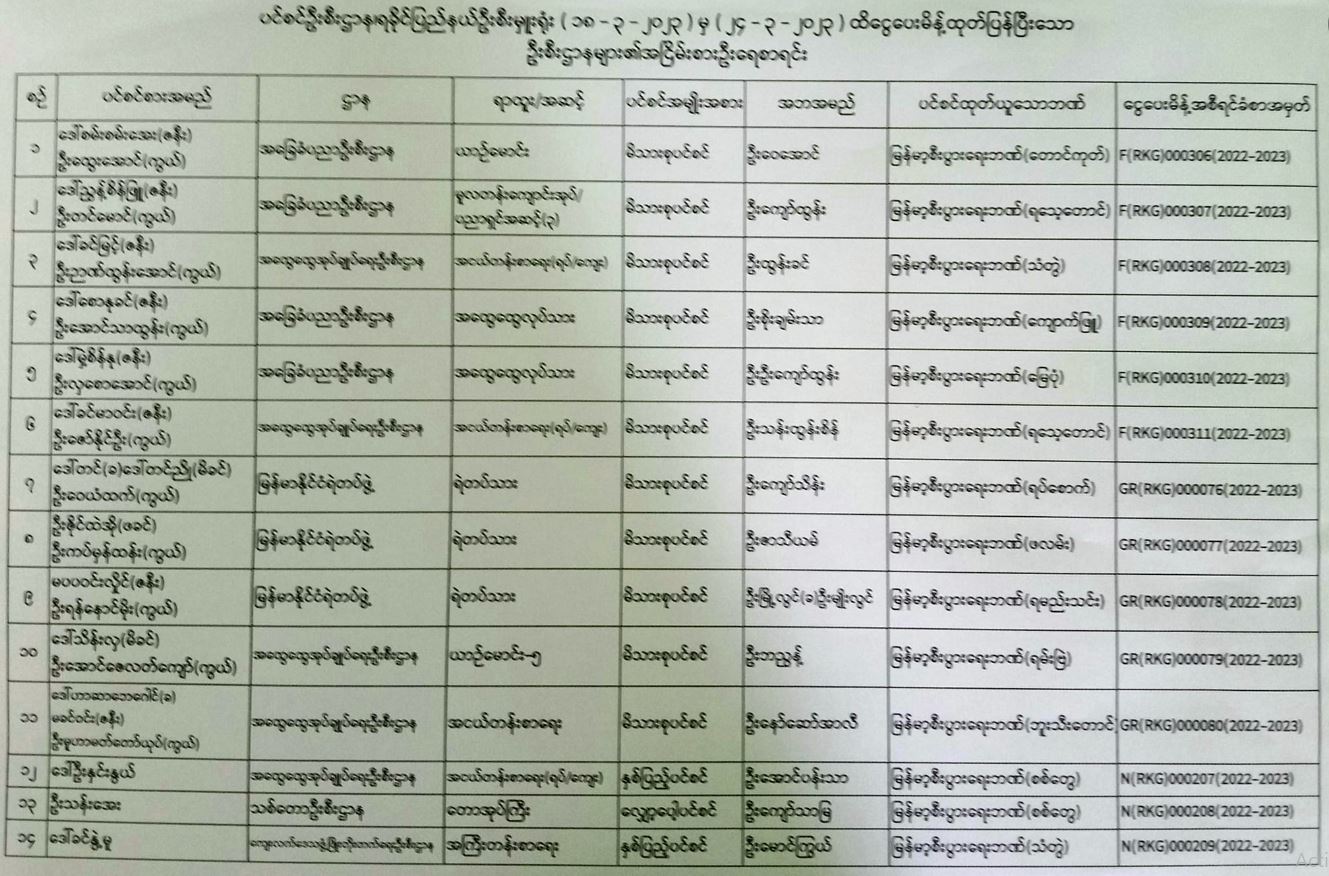 ပင်စင်ဦးစီးဌာန၊ရခိုင်ပြည်နယ်ဦးစီးမှူးရုံး ( ၁၈ - ၃ - ၂၀၂၃ ) မှ ( ၂၄ - ၃ - ၂၀၂၃ ) ထိငွေပေးမိန့်ထုတ်ပြန်ပြီးသော
ဦးစီးဌာနများ၏အငြိမ်းစားဦးရေစာရင်း
စဉ် ပင်စင်စားအမည် ဌာန ရာထူး/အဆင့် ပင်စင်အမျိုးအစား အဘအမည် ပင်စင်ထုတ်ယူသောဘဏ် ငွေပေးမိန့်အစီရင်ခံစာအမှတ်
၁ ဒေါ်စမ်းစမ်းအေး(ဇနီး)
ဦးထွေးအောင်(ကွယ်) အခြေခံပညာဦးစီးဌာန ယာဉ်မောင်း မိသားစုပင်စင် ဦးဝေအောင် မြန်မာ့စီးပွားရေးဘဏ်(တောင်ကုတ်) F(RKG)000306(2022-2023)
၂ ဒေါ်ညွန့်စိန်ဖြူ(ဇနီး)
ဦးတင်မောင်(ကွယ်) အခြေခံပညာဦးစီးဌာန မူလတန်းကျောင်းအုပ်/
ပညာရှင်အဆင့်(၃) မိသားစုပင်စင် ဦးကျော်ထွန်း မြန်မာ့စီးပွားရေးဘဏ်(ရသေ့တောင်) F(RKG)000307(2022-2023)
၃ ဒေါ်ခင်မြင့်(ဇနီး)
ဦးဉာဏ်ထွန်းအောင်(ကွယ်) အထွေထွေအုပ်ချုပ်ရေးဦးစီးဌာန အငယ်တန်းစာရေး(ရပ်/ကျေး) မိသားစုပင်စင် ဦးထွန်းခင် မြန်မာ့စီးပွားရေးဘဏ်(သံတွဲ) F(RKG)000308(2022-2023)
၄ ဒေါ်စောနုခင်(ဇနီး)
ဦးအောင်သာထွန်း(ကွယ်) အခြေခံပညာဦးစီးဌာန အထွေထွေလုပ်သား မိသားစုပင်စင် ဦးစိုးချမ်းသာ မြန်မာ့စီးပွားရေးဘဏ်(ကျောက်ဖြူ) F(RKG)000309(2022-2023)
၅ ဒေါ်မွဲစိန်နု(ဇနီး)
ဦးလှစောအောင်(ကွယ်) အခြေခံပညာဦးစီးဌာန အထွေထွေလုပ်သား မိသားစုပင်စင် ဦးဦးကျော်ထွန်း မြန်မာ့စီးပွားရေးဘဏ်(မြေပုံ) F(RKG)000310(2022-2023)
၆ ဒေါ်ခင်မာဝင်း(ဇနီး)
ဦးဇော်နိုင်ဦး(ကွယ်) အထွေထွေအုပ်ချုပ်ရေးဦးစီးဌာန အငယ်တန်းစာရေး(ရပ်/ကျေး) မိသားစုပင်စင် ဦးသန်းထွန်းစိန် မြန်မာ့စီးပွားရေးဘဏ်(ရသေ့တောင်) F(RKG)000311(2022-2023)
၇ ဒေါ်တင်(ခ)ဒေါ်တင်ညို(မိခင်)
ဦးဝေယံထက်(ကွယ်) မြန်မာနိုင်ငံရဲတပ်ဖွဲ့ ရဲတပ်သား မိသားစုပင်စင် ဦးကျော်သိန်း မြန်မာ့စီးပွားရေးဘဏ်(ရပ်စောက်) GR(RKG)000076(2022-2023)
၈ ဦးနိုင်ထဲအို(ဖခင်)
ဦးကပ်မှန်ထန်း(ကွယ်) မြန်မာနိုင်ငံရဲတပ်ဖွဲ့ ရဲတပ်သား မိသားစုပင်စင် ဦးဇာသီယမ် မြန်မာ့စီးပွားရေးဘဏ်(ဖလမ်း) GR(RKG)000077(2022-2023)
၉ မပပဝင်းလှိုင်(ဇနီး)
ဦးရန်နောင်မိုး(ကွယ်) မြန်မာနိုင်ငံရဲတပ်ဖွဲ့ ရဲတပ်သား မိသားစုပင်စင် ဦးမြို့လွင်(ခ)ဦးမျိုးလွင် မြန်မာ့စီးပွားရေးဘဏ်(ရမည်းသင်း) GR(RKG)000078(2022-2023)
၁၀ ဒေါ်သိန်းလှ(မိခင်)
ဦးအောင်ဇေလတ်ကျော်(ကွယ်) အထွေထွေအုပ်ချုပ်ရေးဦးစီးဌာန ယာဉ်မောင်း-၅ မိသားစုပင်စင် ဦးဘညွန့် မြန်မာ့စီးပွားရေးဘဏ်(ရမ်းဗြဲ) GR(RKG)000079(2022-2023)
၁၁ ဒေါ်ဟာဆာဘေဂေါင်(ခ)
မခင်ဝင်း(ဇနီး)
ဦးမူဟာမတ်တော်ယုပ်(ကွယ်) အထွေထွေအုပ်ချုပ်ရေးဦးစီးဌာန အငယ်တန်းစာရေး မိသားစုပင်စင် ဦးနော်ဆော်အာလီ မြန်မာ့စီးပွားရေးဘဏ်(ဘူးသီးတောင် GR(RKG)000080(2022-2023)
၁၂ ဒေါ်ဦးနှင်းနွယ် အထွေထွေအုပ်ချုပ်ရေးဦးစီးဌာန အငယ်တန်းစာရေး(ရပ်/ကျေး) နှစ်ပြည့်ပင်စင် ဦးအောင်ပန်းသာ မြန်မာ့စီးပွားရေးဘဏ်(စစ်တွေ) N(RKG)000207(2022-2023)
၁၃ ဦးသန်းအေး သစ်တောဦးစီးဌာန တောအုပ်ကြီး လျှော့ပေါ့ပင်စင် ဦးကျော်သာမြ မြန်မာ့စီးပွားရေးဘဏ်(စစ်တွေ) N(RKG)000208(2022-2023)
၁၄ ဒေါ်ခင်နွဲ့မူ ကျေးလက်ဒေသဖွံ့ဖြိုးတိုးတက်ရေးဦးစီးဌာန အကြီးတန်းစာရေး နှစ်ပြည့်ပင်စင် ဦးမောင်ကြွယ် မြန်မာ့စီးပွားရေးဘဏ်(သံတွဲ) N(RKG)000209(2022-2023)
Acti